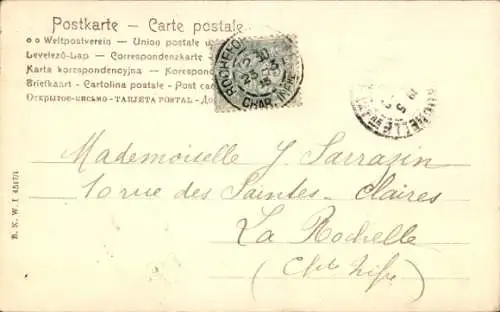 Postkarte – Carte postale
Weltpostverein – Union postale u
Levelező-Lap – Correspondenzkarte
Karta korespondencyjna – Korespon
Briefkaart – Cartolina postale – Post car
Открытое-письмо – TARJETA POSTAL –
ROCHEFORT
CHAR. INFRE
ROCHELLE
Mademoiselle J. Sarrazin
10 rue des Saintes-Claires
La Rochelle
(Chte Infre)
B. K. W. I